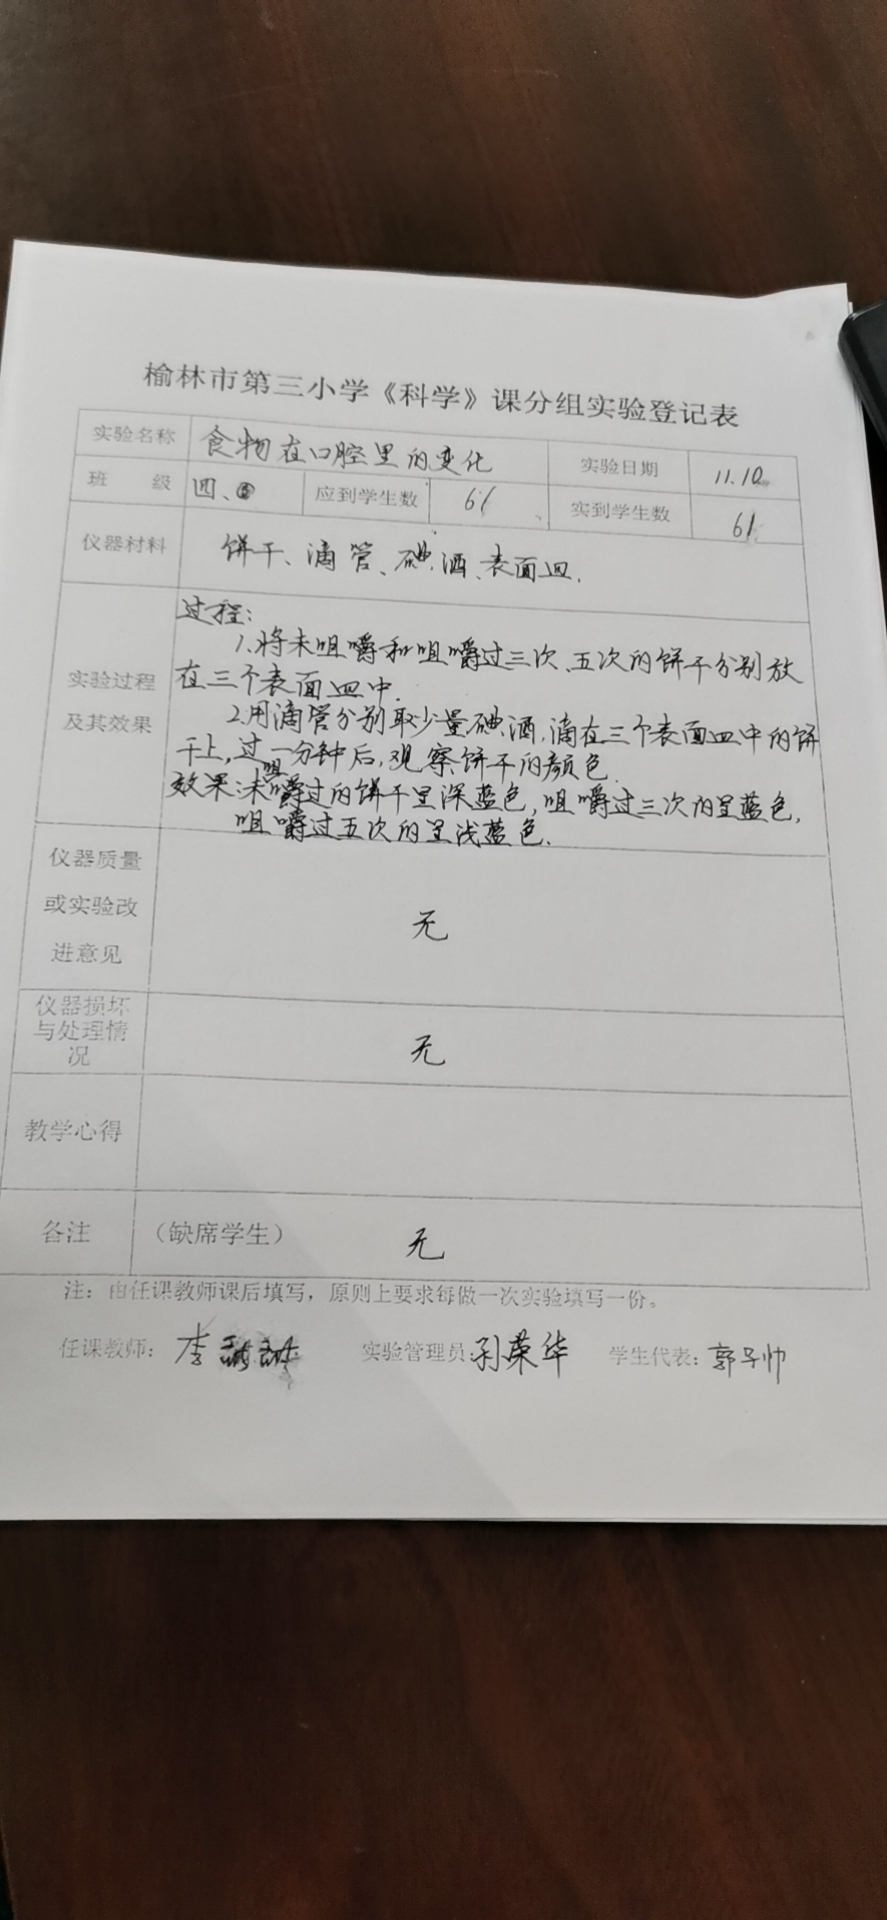 榆林市第三小学《科学》课分组实验登记表
实验名称 食物在口腔里的变化 实验日期 11.10
班 级 四、 应到学生数 61 实到学生数 61
仪器材料 饼干、滴管、碘酒、表面皿.
过程:
1.将未咀嚼和咀嚼过三次、五次的饼干分别放
在三个表面皿中.
实验过程
及其效果
2.用滴管分别取少量碘酒,滴在三个表面皿中的饼
干上,过一分钟后,观察饼干的颜色.
效果:未咀嚼过的饼干呈深蓝色,咀嚼过三次的呈蓝色,
咀嚼过五次的呈浅蓝色.
仪器质量
或实验改
进意见
无
仪器损坏
与处理情
况
无
教学心得
备注 (缺席学生) 无
注：由任课教师课后填写，原则上要求每做一次实验填写一份。
任课教师: 李 实验管理员: 孙荣华 学生代表: 郭子帅